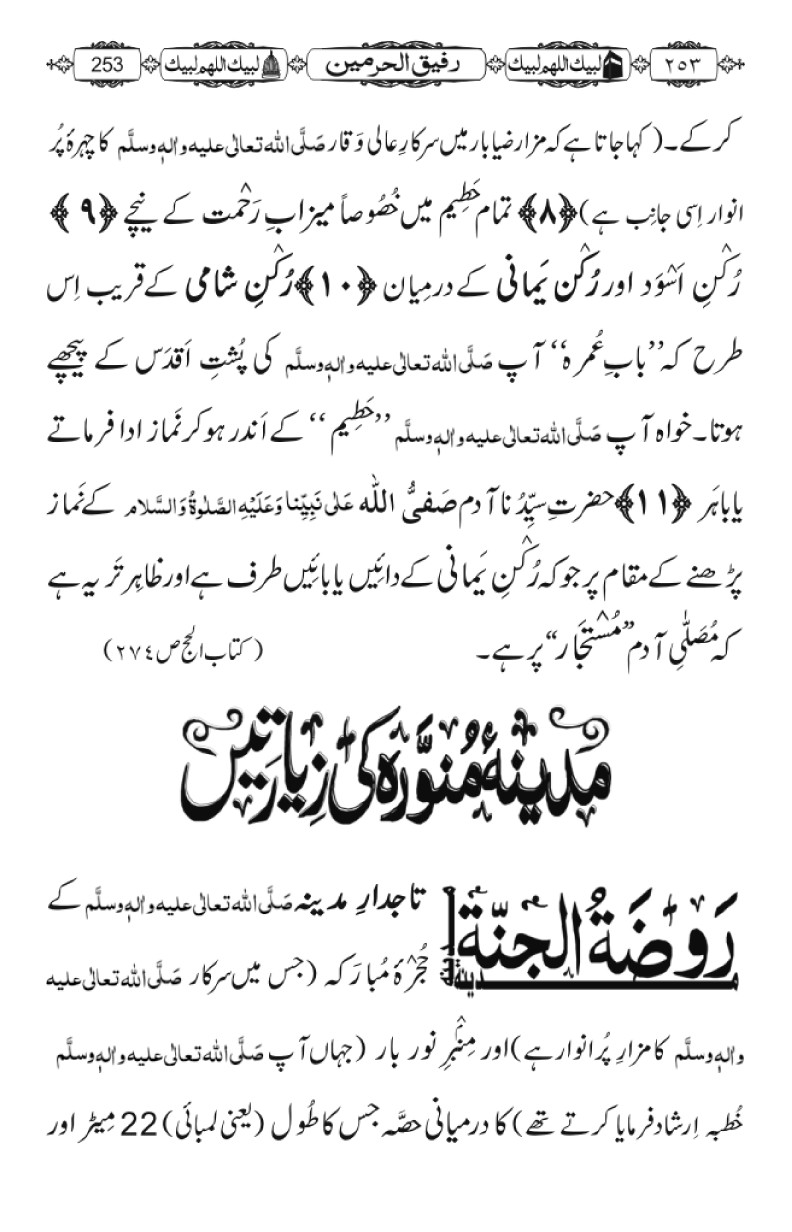 ٢٥٣ لبیك اللھم لبیك رفیق الحرمین لبیك اللھم لبیك 253
کرکے۔( کہا جاتا ہے کہ مزارِ ضیا بار میں سرکارِ عالی وَقار صَلَّی اللہ تعالٰی علیہ واٰلہٖ وسلَّم کا چہرۂ پُر
انوار اِسی جانِب ہے)﴿٨﴾ تمام حَطِیم میں خُصُوصاً میزابِ رَحْمت کے نیچے ﴿٩﴾
رُکْنِ اَسْوَد اور رُکْن یَمانی کے درمِیان ﴿١٠﴾ رُکْنِ شامی کے قریب اِس
طرح کہ ’’بابِ عُمرہ‘‘ آپ صَلَّی اللہ تعالٰی علیہ واٰلہٖ وسلَّم کی پُشتِ اَقدَس کے پیچھے
ہوتا۔خواہ آپ صَلَّی اللہ تعالٰی علیہ واٰلہٖ وسلَّم ’’حَطِیم‘‘ کے اَندر ہو کر نَماز ادا فرماتے
یا باہَر ﴿١١﴾ حضرتِ سیِّدُنا آدم صَفیُّ اللہ عَلٰی نَبِیِّنا وَعَلَیْہِ الصَّلٰوۃُ وَالسَّلام کے نَماز
پڑھنے کے مقام پر جو کہ رُکْنِ یَمانی کے دائیں یا بائیں طرف ہے اور ظاہِر تر یہ ہے
کہ مُصَلّٰیِ آدم ’’مُسْتَجَار‘‘ پر ہے۔ (کتاب الحج ص ٢٧٤)
مدینۂ مُنوَّرہ کی زِیارَتیں
رَوضَۃُ الجنّۃ تاجدارِ مدینہ صَلَّی اللہ تعالٰی علیہ واٰلہٖ وسلَّم کے
حُجْرۂ مُبارَکہ (جس میں سرکار صَلَّی اللہ تعالٰی علیہ
واٰلہٖ وسلَّم کا مزارِ پُر انوار ہے) اور مِنْبَرِ نور بار (جہاں آپ صَلَّی اللہ تعالٰی علیہ واٰلہٖ وسلَّم
خُطبہ اِرشاد فرمایا کرتے تھے) کا درمیانی حصَّہ جس کا طُول (یعنی لمبائی) 22 مِیٹر اور